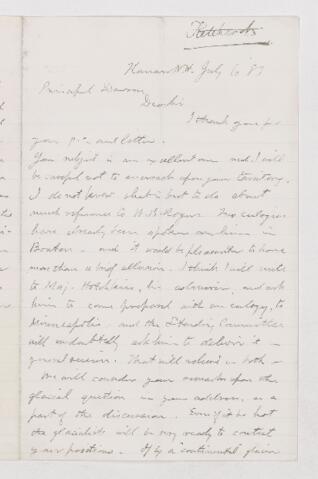 Hitchcock
Hanover N.H. July 6 '83
Principal Dawson,
Dear Sir
I thank you for
your p.c. and letter.
Your subject is an excellent one and I will
be careful not to encroach upon your territory.
I do not know what is best to do about
much reference to W.B. Rogers. Two eulogies
have already been spoken on him in
Boston – and it would be pleasanter to have
more than a brief allusion. I think I will write
to Maj. Hotchkiss, his coadjutor, and ask
him to come prepared with an eulogy, to
Minneapolis – and the Standing Committee
will undoubtedly ask him to deliver it –
general session. That will relieve us both –
We will consider your remarks upon the
glacial question in your address, as a
part of the discussion. Even if it be hot
the glacialists will be very ready to contest
your positions. If by a "continental" glacier